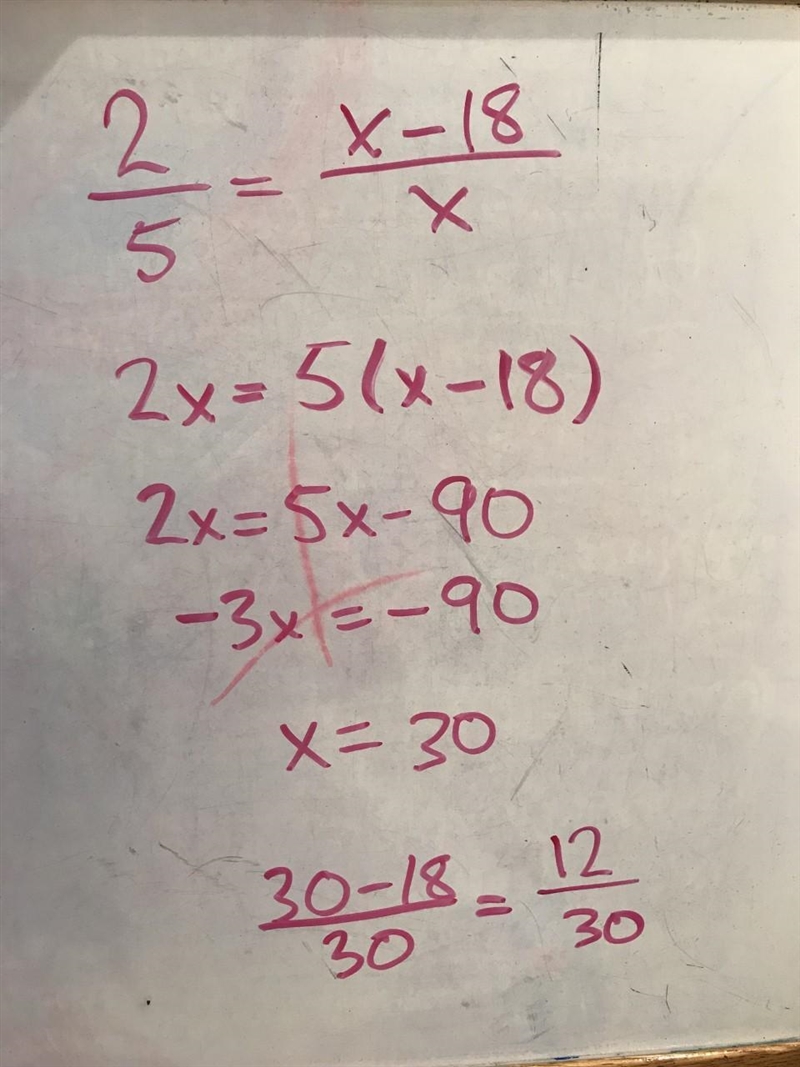 2/5 = (x-18)/x
2x = 5(x-18)
2x = 5x - 90
-3x = -90
x = 30
(30-18)/30 = 12/30